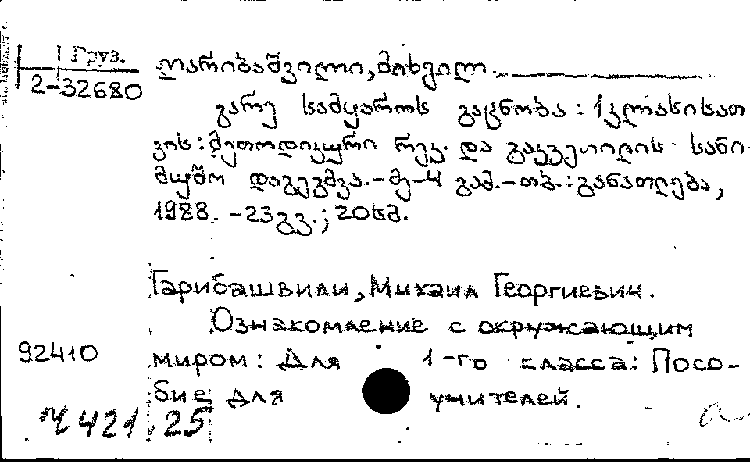 Груз.
2-32680
ღარიბაშვილი, მიხეილ.
გარე სამყაროს გაცნობა: 1 კლასისათ
ვის: მეთოდიკური რეკ. და გაკვეთილის სანი-
მუშო დაგეგმვა.-მე-4 გამ.-თბ.: განათლება,
1988. -23გვ.; 20სმ.
Гарибашвили, Михаил Георгиевич.
Ознакомление с окружающим
миром: Для 1-го класса: Посо-
бие для учителей.
92410
Ч 421.25